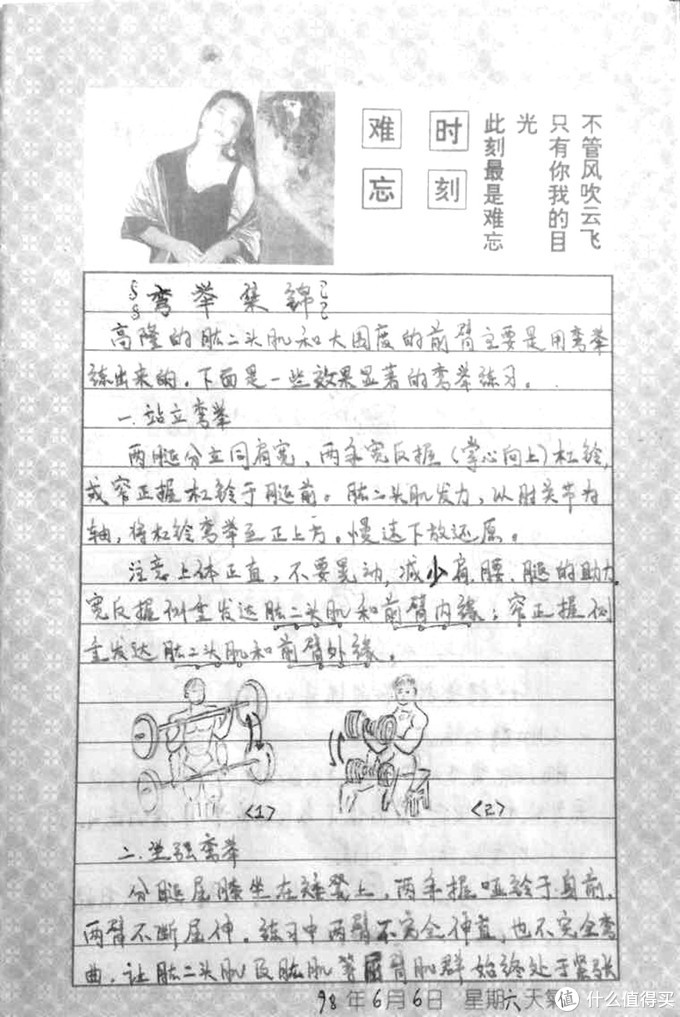 难忘时刻
不管风吹云飞
只有你我的目光
此刻最是难忘
弯举集锦
高隆的肱二头肌和大围度的前臂主要是用弯举
练出来的。下面是一些效果显著的弯举练习。
一.站立弯举
两腿分立同肩宽，两手宽反握（掌心向上）杠铃，
或窄正握杠铃于腿前。肱二头肌发力，以肘关节为
轴，将杠铃弯举至正上方。慢速下放还原。
注意上体正直，不要晃动，减少肩、腰、腿的助力。
宽反握侧重发达肱二头肌和前臂内缘；窄正握侧
重发达肱二头肌和前臂外缘。
<1>
<2>
二.坐张弯举
分腿屈膝坐在矮凳上，两手握哑铃于身前，
两臂不断屈伸。练习中两臂不完全伸直，也不完全弯
曲，让肱二头肌及肱肌等屈臂肌群始终处于紧张
98年6月6日 星期六 天氣
值 什么值得买